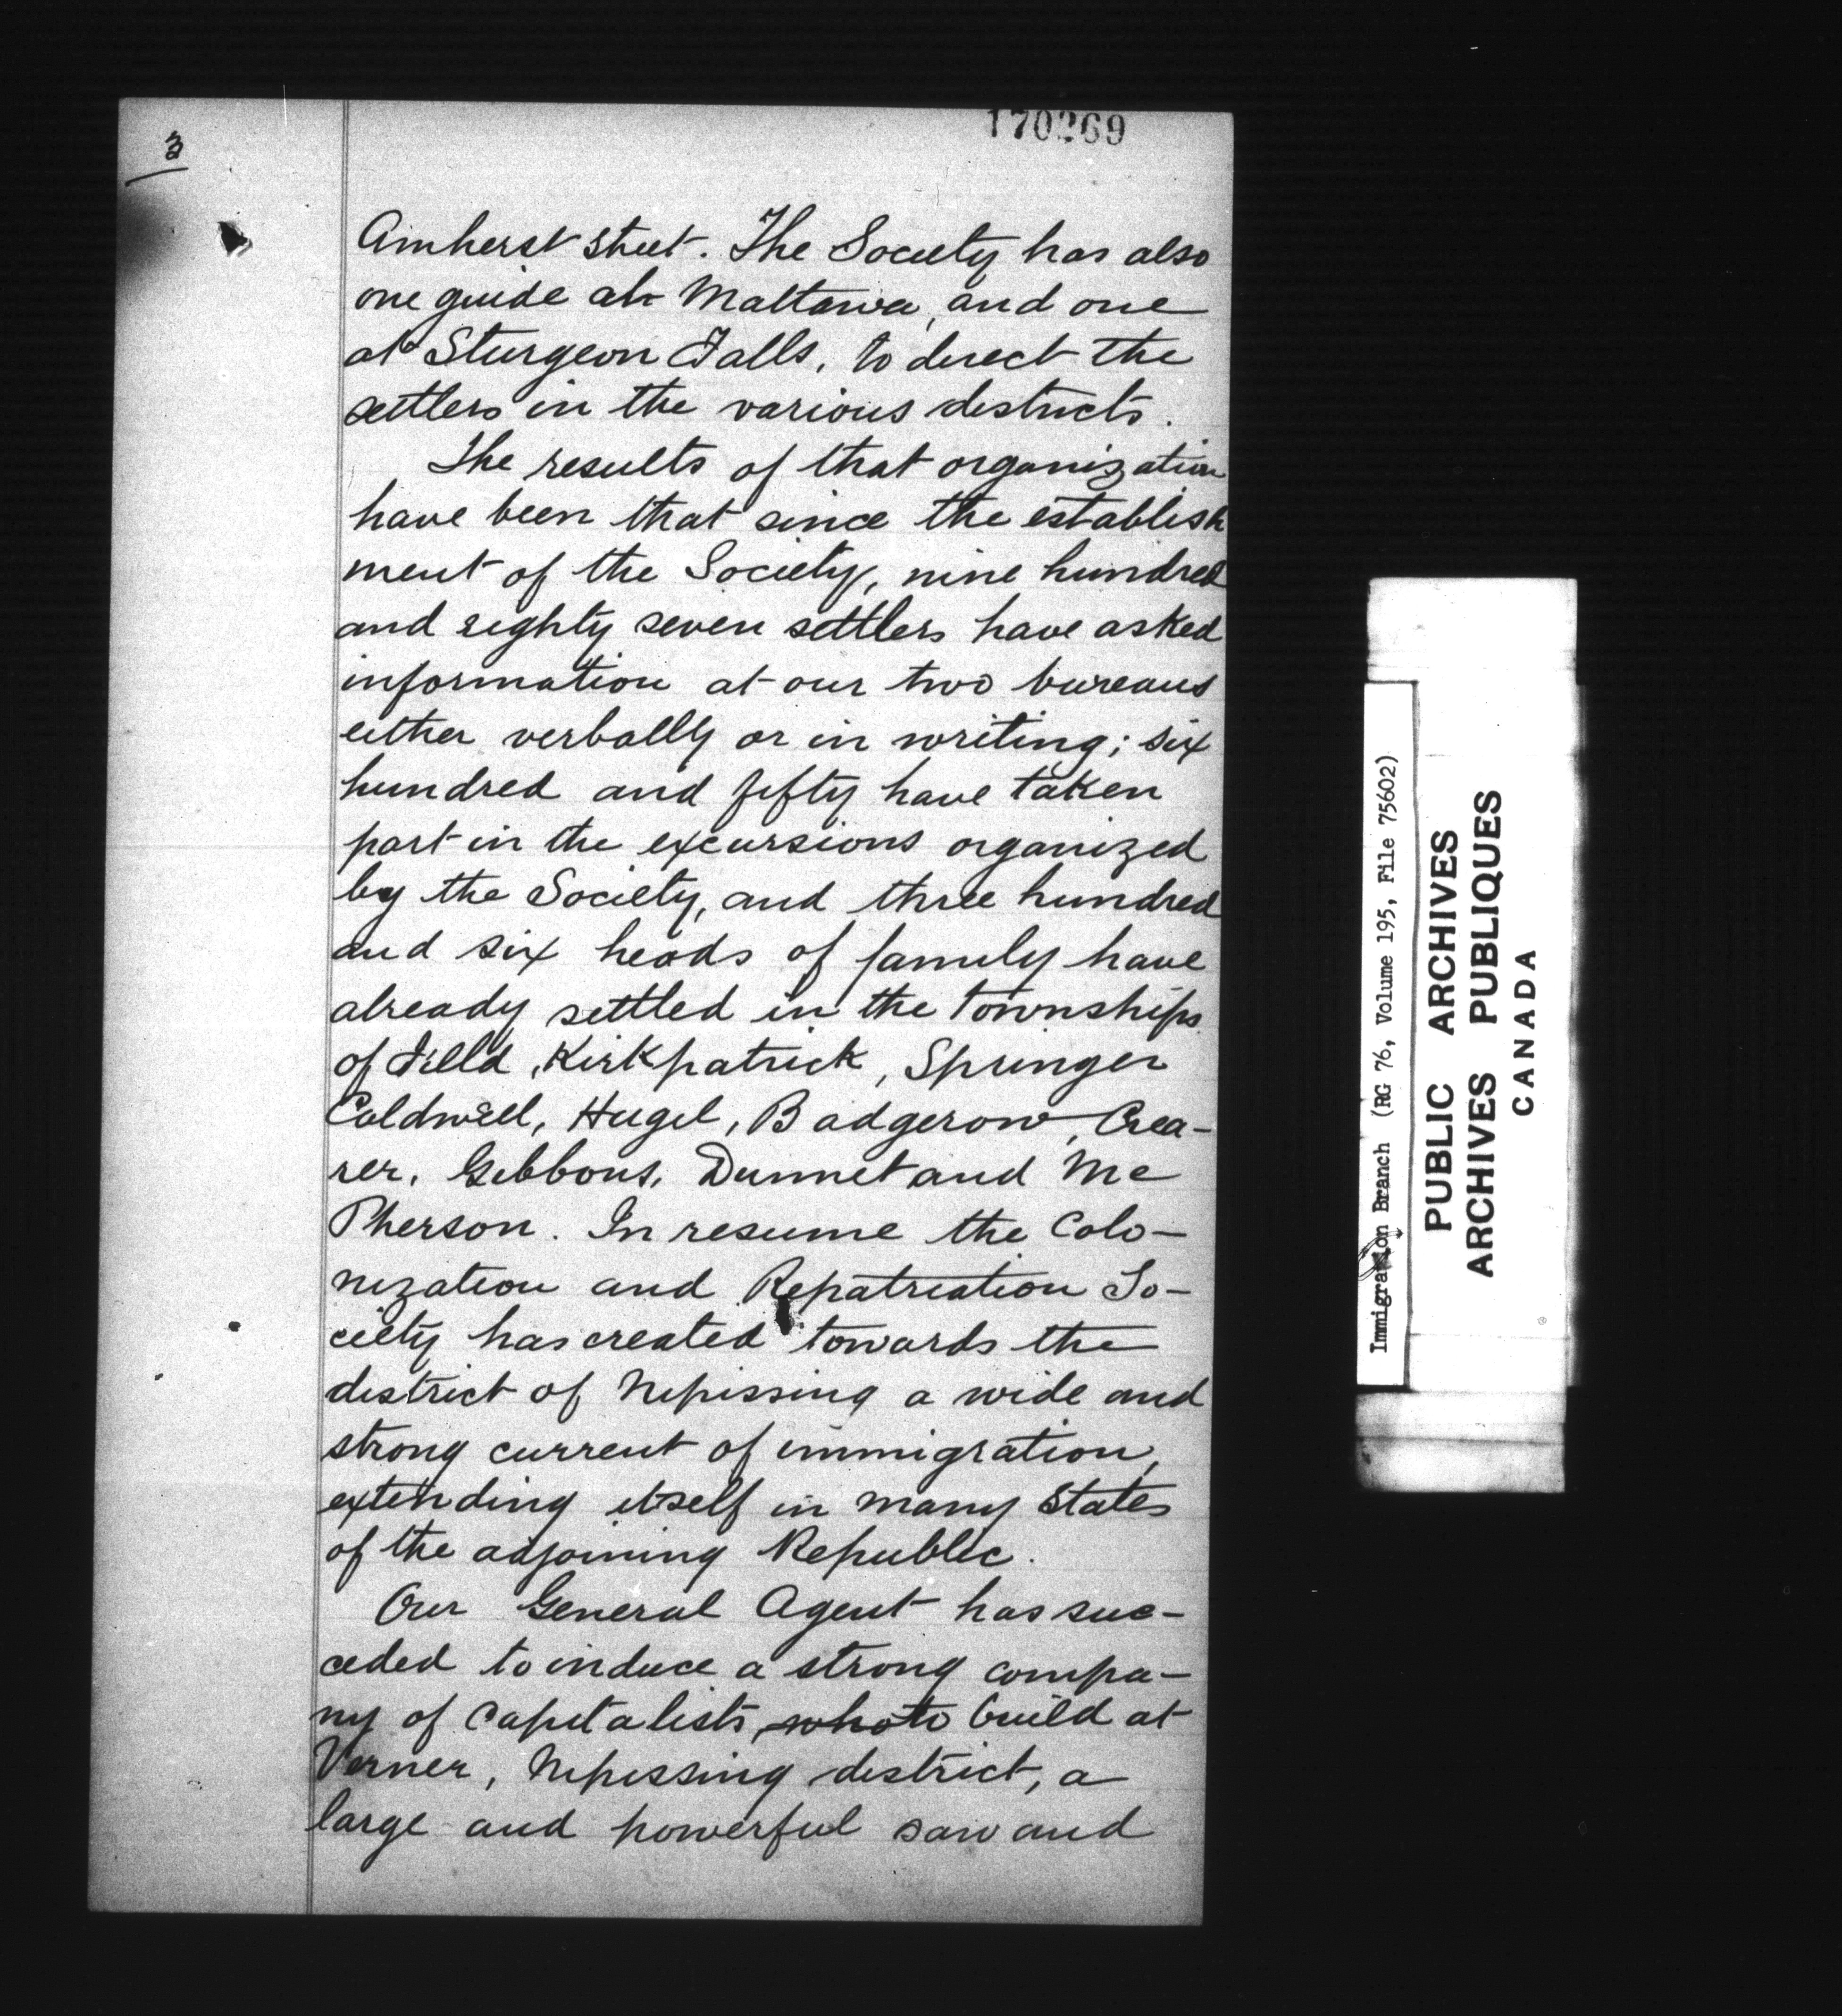 3
170269
Amherst street. The Society has also
one guide at Mattawa, and one
at Sturgeon Falls, to direct the
settlers in the various districts.
The results of that organization
have been that since the establish
ment of the Society, nine hundred
and eighty seven settlers have asked
information at our two bureaus
either verbally or in writing; six
hundred and fifty have taken
part in the excursions organized
by the Society, and three hundred
and six heads of family have
already settled in the townships
of Field, Kirkpatrick, Springer
Caldwell, Hugel, Badgerow, Crea-
rer, Gibbons, Dunnet and Mc
Pherson. In resume the Colo-
nization and Repatriation So-
ciety has created towards the
district of Nipissing a wide and
strong current of immigration,
extending itself in many States
of the adjoining Republic.
Our General Agent has suc-
ceded to induce a strong compa-
ny of capitalists, who to build at
Verner, Nipissing district, a
large and powerful saw and
Immigration Branch (RG 76, Volume 195, File 75602)
PUBLIC ARCHIVES
ARCHIVES PUBLIQUES
CANADA